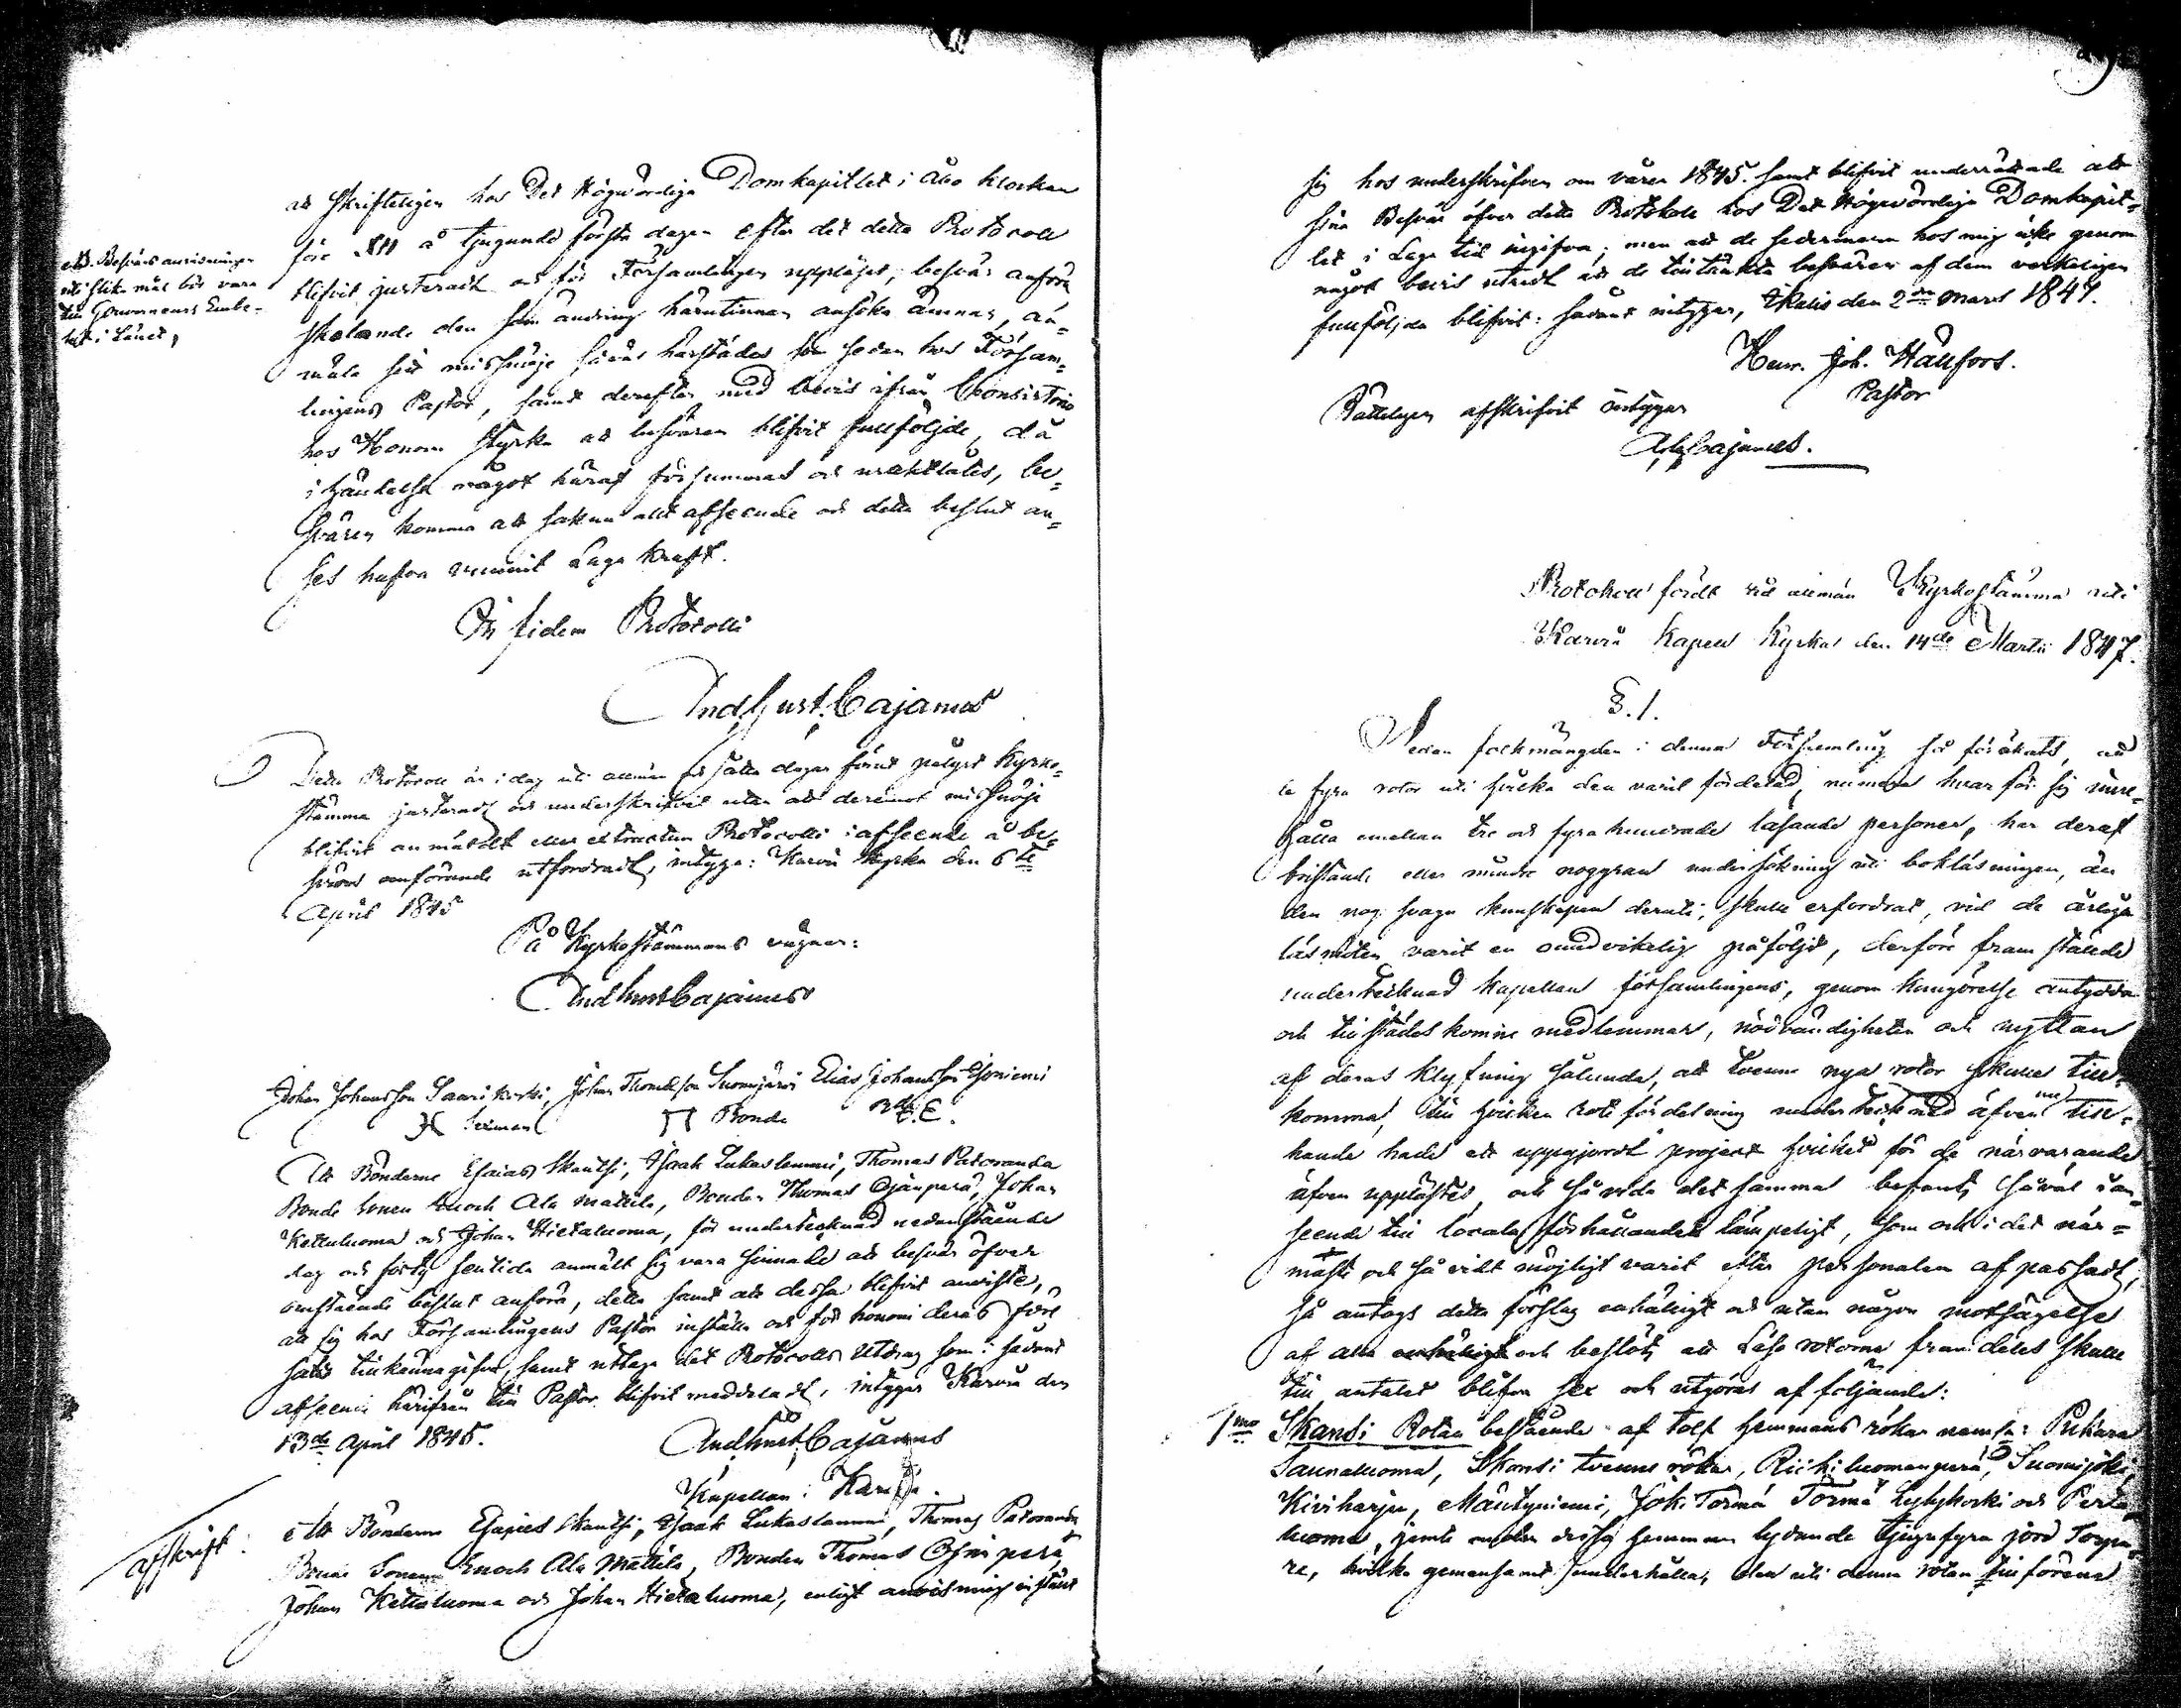 att skrifteligen hos Det Högvördiga Domkapitlet i Åbo klockan
före XII å tjugunde första dagen efter det detta Protocoll
blifvit justeradt och för Församlingen uppläset, besvär anföra
skolande den som ändring härutinnan ansöka ämnar, an-
mäla sitt missnöje såväl härstädes som sedan hos Församl-
lingens Pastor, samt derefter med bevis ifrån Consistorio
hos Honom styrka att besvären blifvit fullföljde, då
i händelse något häraf försummas och uraktlåtes, be-
svären komma att sakna allt afseende och detta beslut an-
ses hafva vunnit Laga kraft.
att Besvärs anvisningen
uti slika mål bör vara
till Gouverneurs Embe-
tet i Länet,
In fidem Protocolli
And Gust. Cajanus
Detta Protocoll är i dag uti allmän för åtta dagar förut pålyst Kyrko-
stämma justeradt och underskrifvit utan att deremot missnöje
blifvit anmäldt eller extractum Protocolli i afseende å be-
svärs anförande utfordradt, intyga: Karvia Kyrka den 6te
April 1845
På Kyrkostämmans vägnar:
And Gust Cajanus
Johan Johansson Saarikoski, Johan Thomasson Suomijärvi Elias Johansson
Sexman Bonde E.
Att Bönderne Esaias Skantsi, Isaak Lukaslammi, Thomas Patovanda
Bonde Sonen Enoch Ala Mattila, Bonden Thomas Ojanperä, Johan
Kettuluoma och Johan Hietaluoma, för undertecknad nedanstående
dag och sig vara sinnade att besvär öfver
omstående beslut anföra, detta samt att dessa blifvit anviste,
att sig hos Församlingens Pastor inställa och för honom deras före
satts tillkännagifva, samt uttaga det Protocolls Utdrag som i sådant
afseende härifrån till Pastor blifvit meddeladt, intygar Karvia den
13de April 1845.
And Gust Cajanus
Kapellan i Karvia.
afskrift:
Att Bönderne Esaias Skantsi, Isaak Lukaslammi, Thomas Patovanda
Bonde Sonen Enoch Ala Mattila, Bonden Thomas Ojanperä,
Johan Kettuluoma och Johan Hietaluoma, enligt anvisning instält
sig hos underskrifven om våren 1845. samt blifvit underrättade att
sina Besvär öfver detta Protokoll hos Det Högvördiga Domkapit-
let i Laga tid ingifva; men att de sedermera hos mig icke genom
något bevis utredt att de tilltänkta besvären af dem verkeligen
fullföljda blifvit: sådant intygar, Ikalis den 2dra Mars 1847.
Henr. Joh. Hällfors.
Pastor
Rätteligen afskrifvit intygar
And. G. Cajanus.
Protokoll fördt vid allmän Kyrkostämma uti
Karvia Kapell Kyrka den 14de Martii 1847.
§. 1.
Sedan folkmängden i denna Församling så förökats, att
de fyra rotor uti hvilka den varit fördelad, numera hvar för sig inne-
hålla emellan tre och fyra hundrade läsande personer, har deraf
bristande eller mindre noggran undersökning uti bokläsningen, än
den nog svaga kunskapen deruti, skulle erfordrat, vid de årliga
läsmöten varit en oundvikelig påföljd, derföre framstälde
undertecknad Kapellan församlingens, genom kungörelse antydda
och tillstädeskomne medlemmar, nödvändigheten och nyttan
af deras klyfning sålunda, att tvenne nya rotor skulle till-
komma, till hvilken rote fördelning undertecknad äfven till-
handa hade ett uppgjordt project hvilket för de närvarande
äfven upplästes, och så vida det samma befants såväl i an-
seende till locala förhållandet lämpeligt, som och i det när-
maste och så vidt möjligt varit efter personalen afpassadt,
så antogs detta förslag enhälligt och utan någon motsägelse
af alla enhälligt och beslöts, att Läse rotorne framdeles skulle
till antalet blifva sex och utgöras af följande:
1mo Skantsi Rotan bestående af tolf hemmans rökar nemlig: Pukara
Saunaluoma, Skantsi tvenne rökar, Riikiluomanperä, Suomijoki,
Kiviharju, Mäntyniemi, Joki Törmä Törmä Lylykoski och Perä
luoma, jemte under dessa hemman lydande tjugufyra jord Torpa-
re, hvilka gemensamt underhålla, den uti denna rotan tillförene